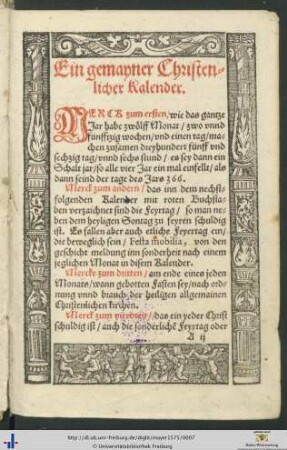 Ein gemayner Christen-
licher Kalender.
MERCK zum ersten/ wie das gantze
Jar habe zwölff Monat/ zwo vnnd
fünfftzig wochen/ vnd einen tag/ ma-
chen zusamen dreyhundert fünff vnd
sechzig tag/ vnnd sechs stund/ es sey dann ein
Schalt jar/ so alle vier Jar ein mal einfelt/ als
dann seind der tage des Jars 366.
Merck zum andern/ das inn dem nechst-
folgenden Kalender mit roten Buchsta-
ben verzaichnet sind die Feyrtag/ so man ne-
ben dem heyligen Sontag zu feyren schuldig
ist. Es fallen aber auch etliche Feyertag ein/
die beweglich sein/ Festa mobilia, von den
geschicht meldung inn sonderheit nach einem
jeglichen Monat in disem Kalender.
Mercke zum dritten/ am ende eines jeden
Monats/ wann gebotten Fasten sey/ nach ord-
nung vnnd brauch der heiligen allgemainen
Christenlichen kirchen.
Merck zum vierdten/ das ein yeder Christ
schuldig ist/ auch die sonderliche Feyrtag oder
A ij
http://dl.ub.uni-freiburg.de/diglit/mayer1575/0007
© Universitätsbibliothek Freiburg